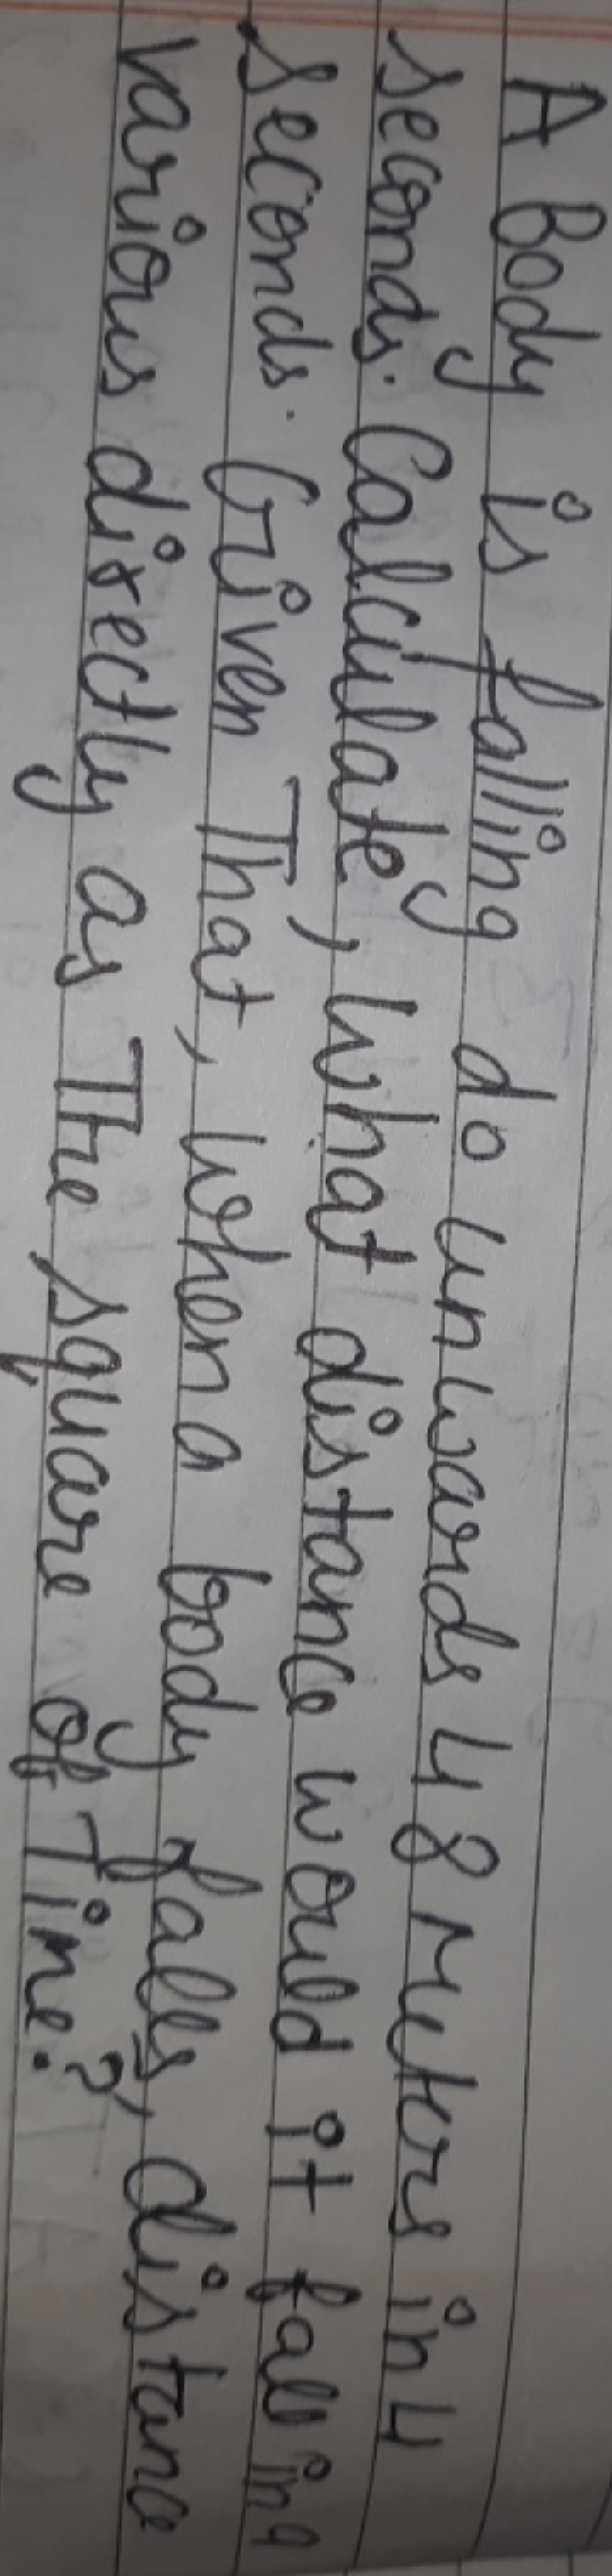 A Body is falling do unwards 48 meters in 4
seconds. Calculate, what distance would it fall in 9
seconds. Given That, when a body falls, distance
various directly as The square of Time?